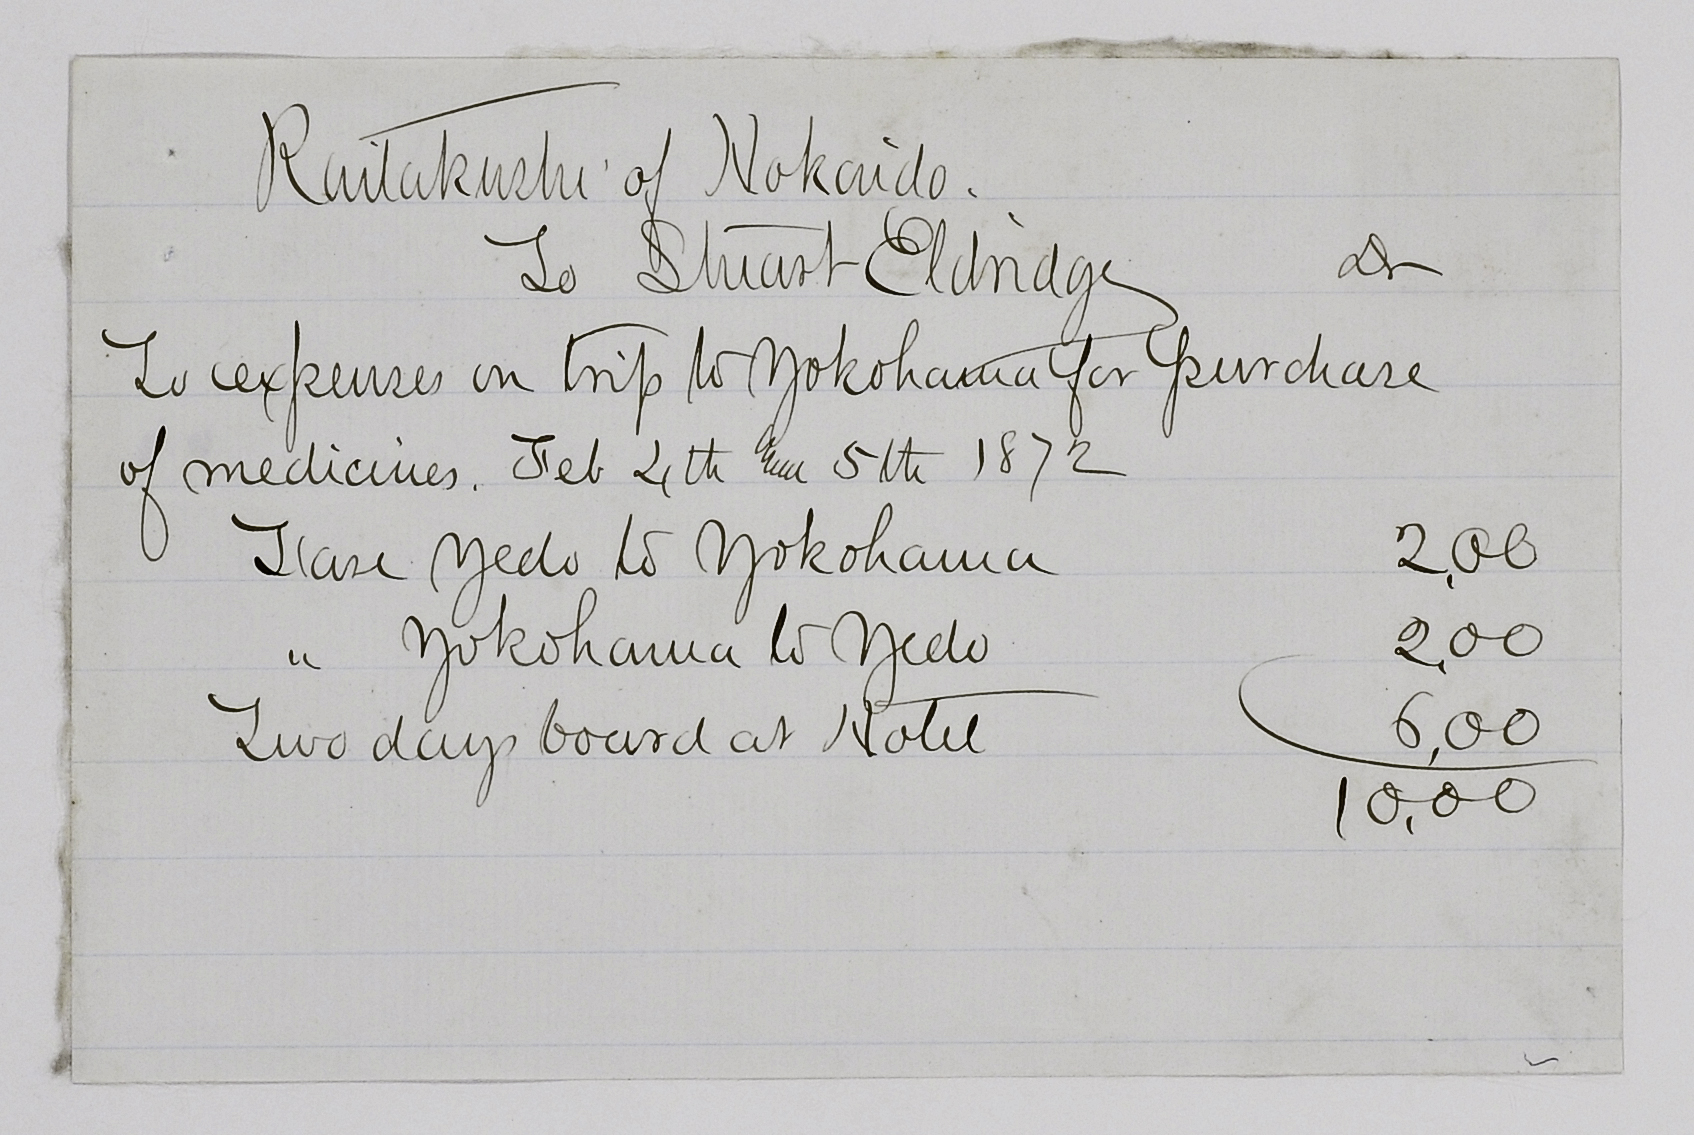 Kaitakushi of Hokaido.
To Stuart Eldridge Dr
To expenses on trip to Yokohama for purchase
of medicines. Feb 4th 5th 1872
Fare Yedo to Yokohama 2,00
" Yokohama to Yedo 2,00
Two days board at Hotel 6,00
10,00